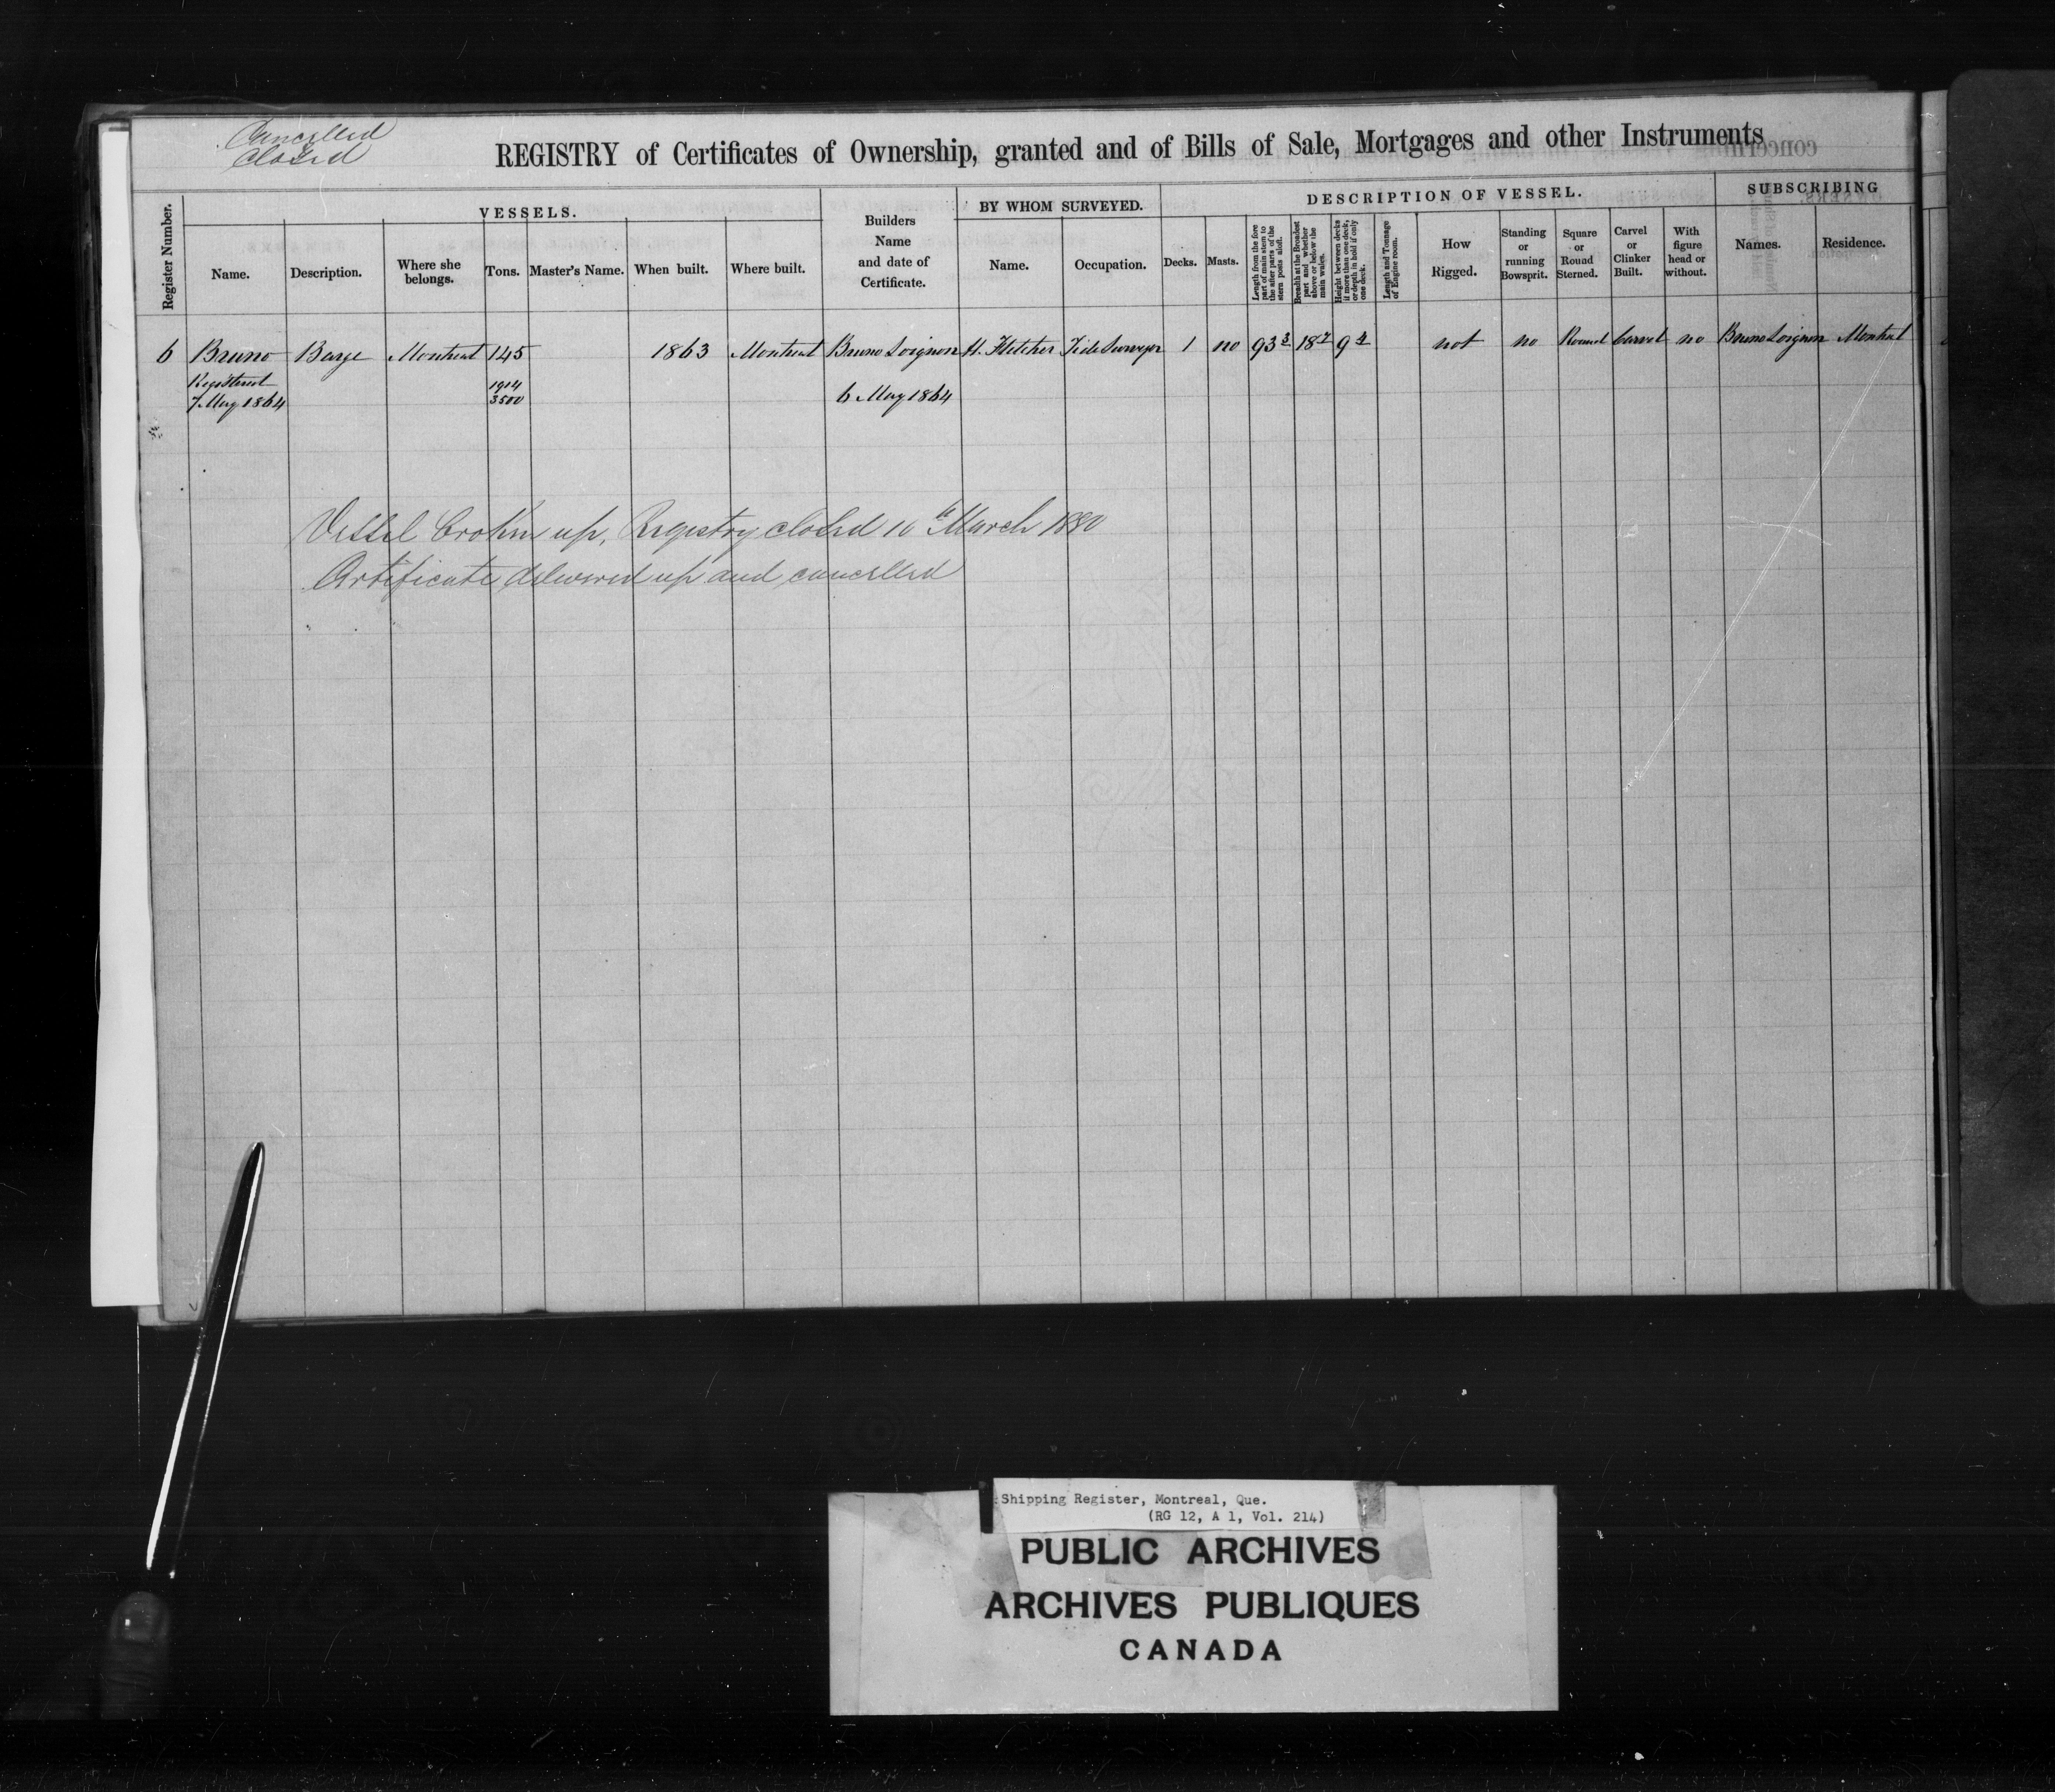 Cancelled
Closed
REGISTRY of Certificates of Ownership, granted and of Bills of Sale, Mortgages and other Instruments
concerning
Register Number.
VESSELS.
Name.
Description.
Where she belongs.
Tons.
Master's Name.
When built.
Where built.
Builders Name and date of Certificate.
BY WHOM SURVEYED.
Name.
Occupation.
DESCRIPTION OF VESSEL.
Decks.
Masts.
Length from the fore part of main stem to the after parts of the stern posts aloft.
Breadth at the Broadest part and whether above or below the main wales.
Height between decks if more than one deck, or depth in hold if only one deck.
Length and Tonnage of Engine room.
How Rigged.
Standing or running Bowsprit.
Square or Round Sterned.
Carvel or Clinker Built.
With figure head or without.
SUBSCRIBING
Names.
Residence.
6 Bruno Barge Montreal 145 1863 Montreal Bruno Soignon H. Fletcher Tide Surveyor 1 no 93 3 18 7 9 4 not no Round Carvel no Bruno Soignon Montreal
Registered 1914
7 May 1864 3500 6 May 1864
Vessel broken up, Registry closed 10th March 1880
Certificate delivered up and cancelled
Shipping Register, Montreal, Que.
(RG 12, A 1, Vol. 214)
PUBLIC ARCHIVES
ARCHIVES PUBLIQUES
CANADA